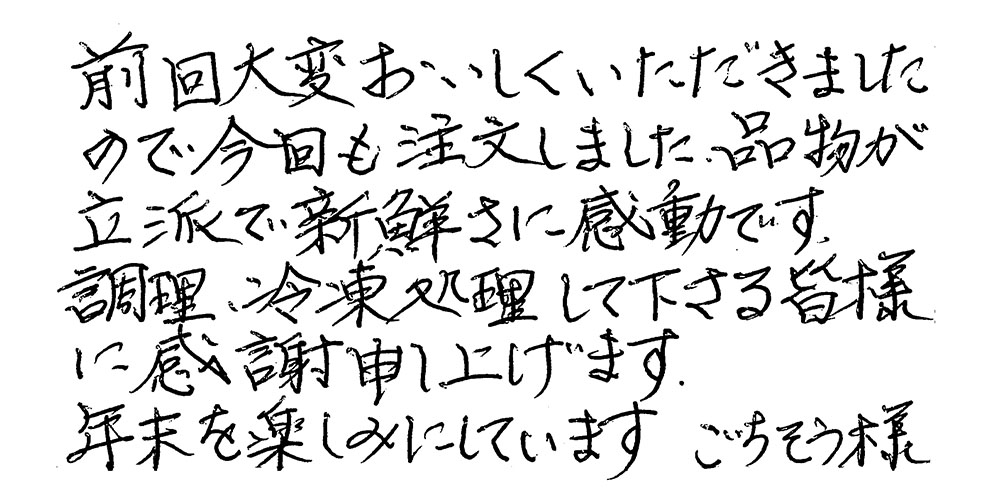 前回大変おいしくいただきました
ので今回も注文しました、品物が
立派で新鮮さに感動です。
調理、冷凍処理して下さる皆様
に感謝申し上げます。
年末を楽しみにしています ごちそう様